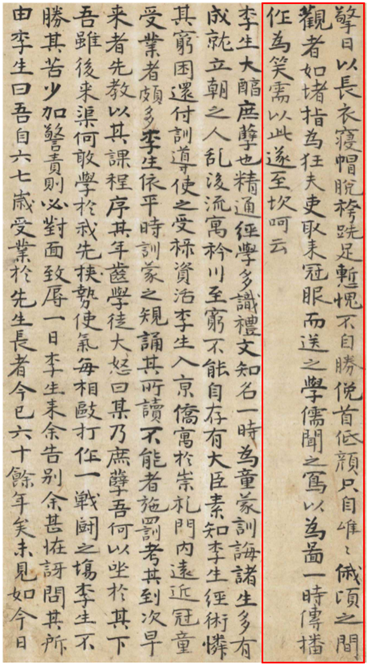 擎日以長衣寢帽脫袴跣足慙愧不自勝俛首低顔只自唯〻俄頃之間
觀者如堵指為狂夫吏取来冠服而送之學儒聞之寫以為啚一時傳播
作為笑需以此遂至坎呵云
李生大醅庶孽也精通經學多識禮文知名一時為童蒙訓誨諸生多有
成就立朝之人乱後流寓衿川至窮不能自存有大臣素知李生經術憐
其窮困還付訓導使之受祿資活李生入京僑寓於崇礼門內遠近冠童
受業者頗多李生依平時訓蒙之規誦其所讀不能者施罰考其到次早
来者先教以其課程序其年齒學徒大怒曰某乃庶孽吾何以坐於其下
吾雖後来渠何敢學於我先挾勢使氣每相敺打作一戰鬪之塲李生不
勝其苦少加警責則必對面致辱一日李生来余告別余甚恠訝問其所
由李生曰吾自六七歲受業於先生長者今已六十餘年矣未見如今日